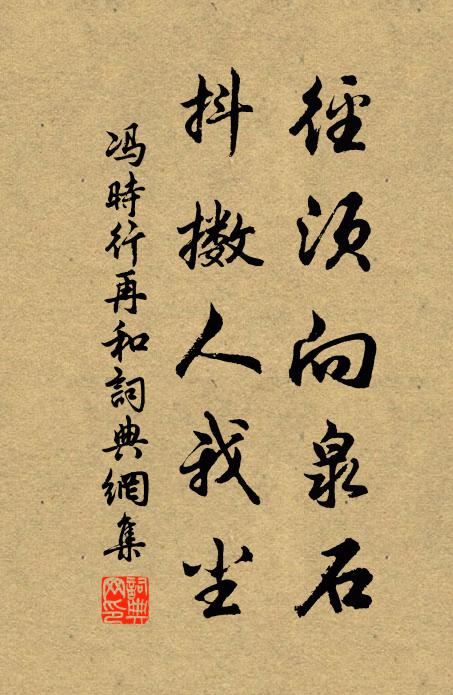 徑須向泉石
抖擻人我尘
冯時行再和詞典網集
詞典网印